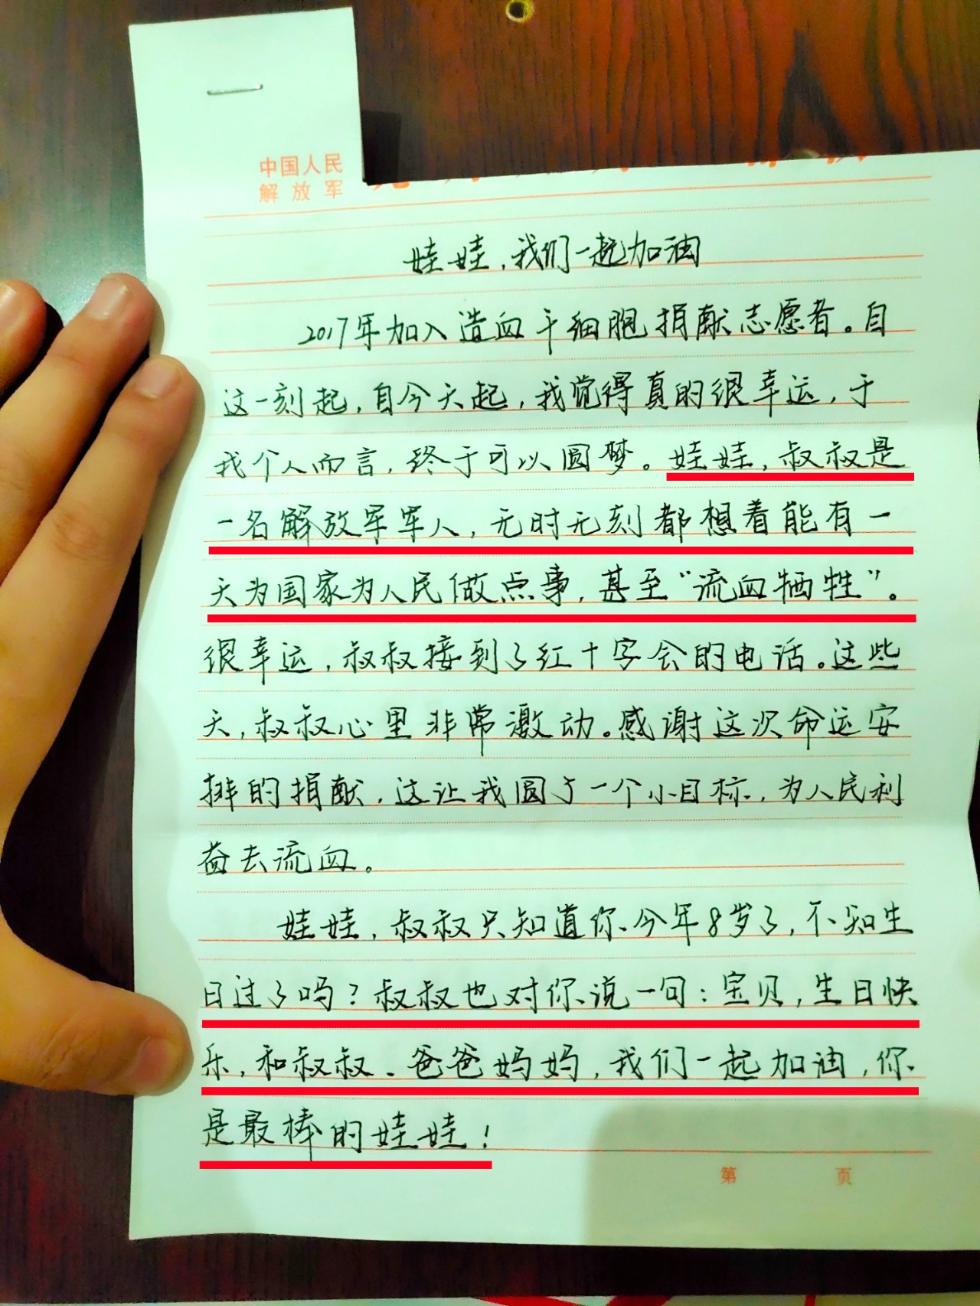 中国人民
解放军
娃娃，我们一起加油
2017年加入造血干细胞捐献志愿者。自
这一刻起，自今天起，我觉得真的很幸运，于
我个人而言，终于可以圆梦。娃娃，叔叔是
一名解放军军人，无时无刻都想着能有一
天为国家为人民做点事，甚至“流血牺牲”。
很幸运，叔叔接到了红十字会的电话。这些
天，叔叔心里非常激动。感谢这次命运安
排的捐献，这让我圆了一个小目标，为人民利
益去流血。
娃娃，叔叔只知道你今年8岁了，不知生
日过了吗？叔叔也对你说一句：宝贝，生日快
乐，和叔叔、爸爸妈妈，我们一起加油，你
是最棒的娃娃！
第 页